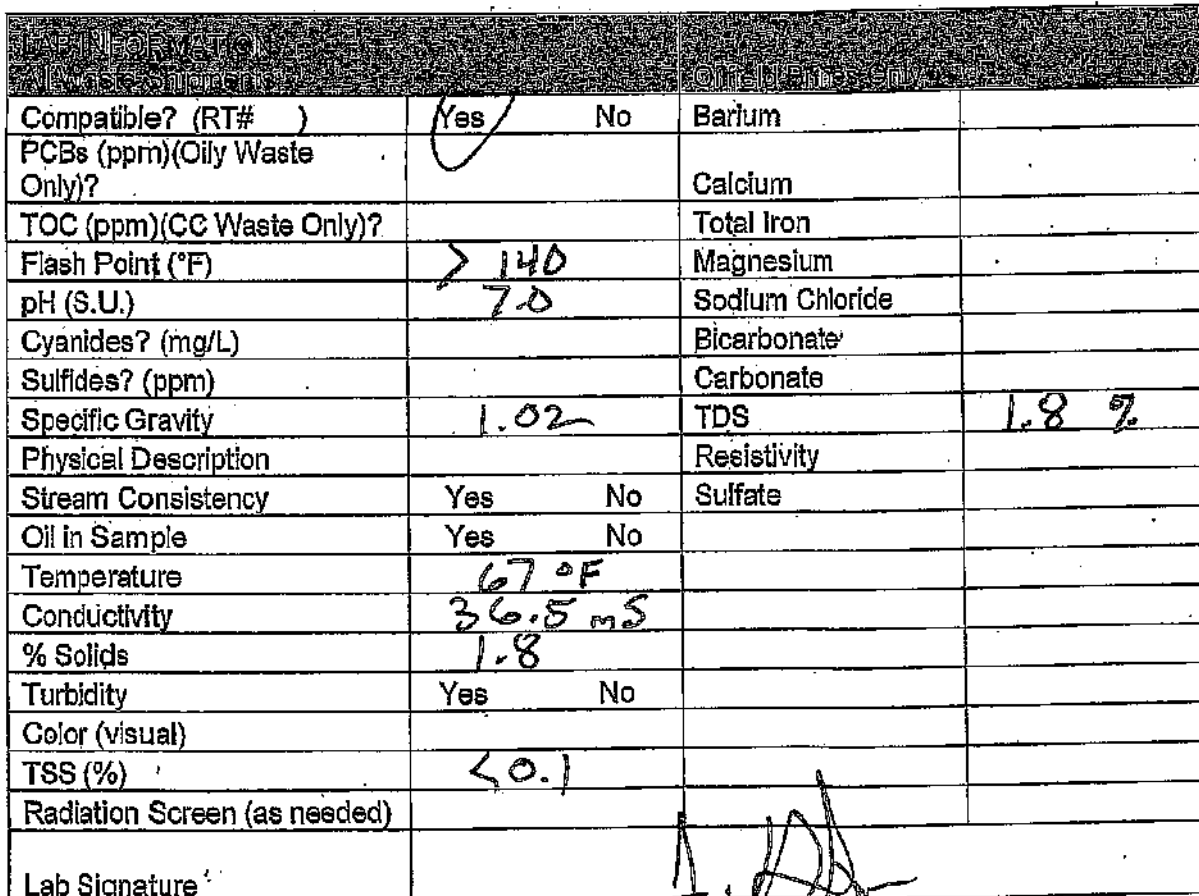 LAB INFORMATION
All Waste Shipments Oilfield Brines Only
Compatible? (RT# ) Yes No Barium
PCBs (ppm)(Oily Waste
Only)? Calcium
TOC (ppm)(CC Waste Only)? Total Iron
Flash Point (°F) > 140 Magnesium
pH (S.U.) 7.0 Sodium Chloride
Cyanides? (mg/L) Bicarbonate
Sulfides? (ppm) Carbonate
Specific Gravity 1.02 TDS 1.8 %
Physical Description Resistivity
Stream Consistency Yes No Sulfate
Oil in Sample Yes No
Temperature 67 °F
Conductivity 36.5 mS
% Solids 1.8
Turbidity Yes No
Color (visual)
TSS (%) <0.1
Radiation Screen (as needed)
Lab Signature